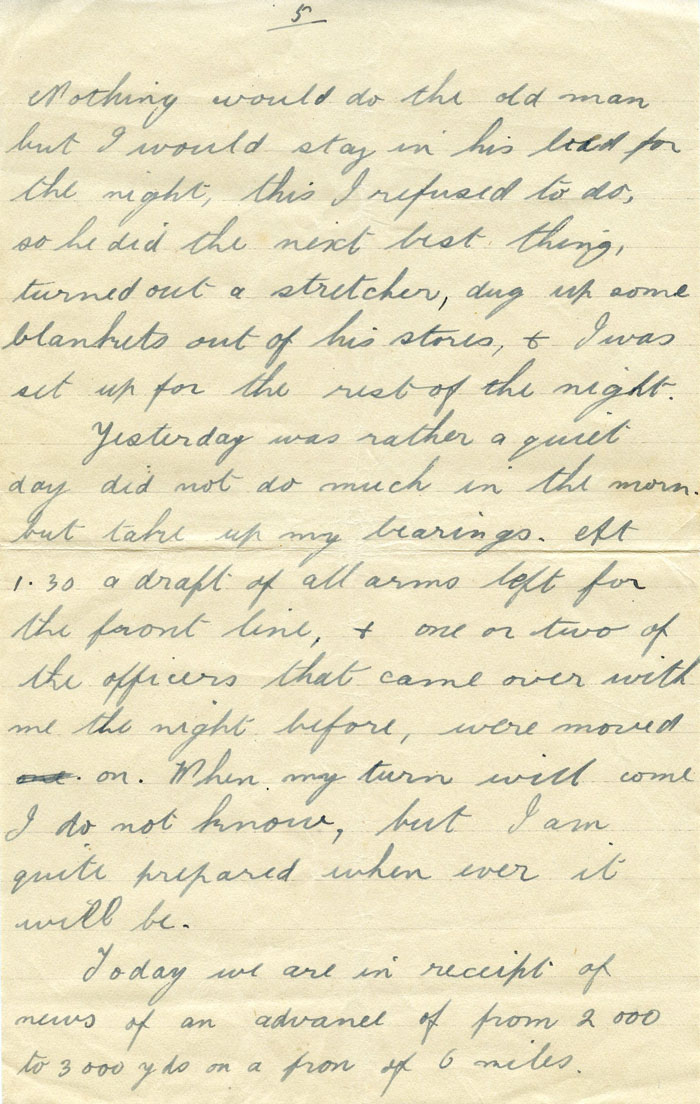 5
Nothing would do the old man
but I would stay in his bed for
the night, this I refused to do,
so he did the next best thing,
turned out a stretcher, dug up some
blankets out of his stores, & I was
set up for the rest of the night.
Yesterday was rather a quiet
day did not do much in the morn.
but take up my bearings. At
1.30 a draft of all arms left for
the front line, & one or two of
the officers that came over with
me the night before, were moved
one. on. When my turn will come
I do not know, but I am
quite prepared when ever it
will be.
Today we are in receipt of
news of an advance of from 2000
to 3000 yds on a fron of 6 miles.